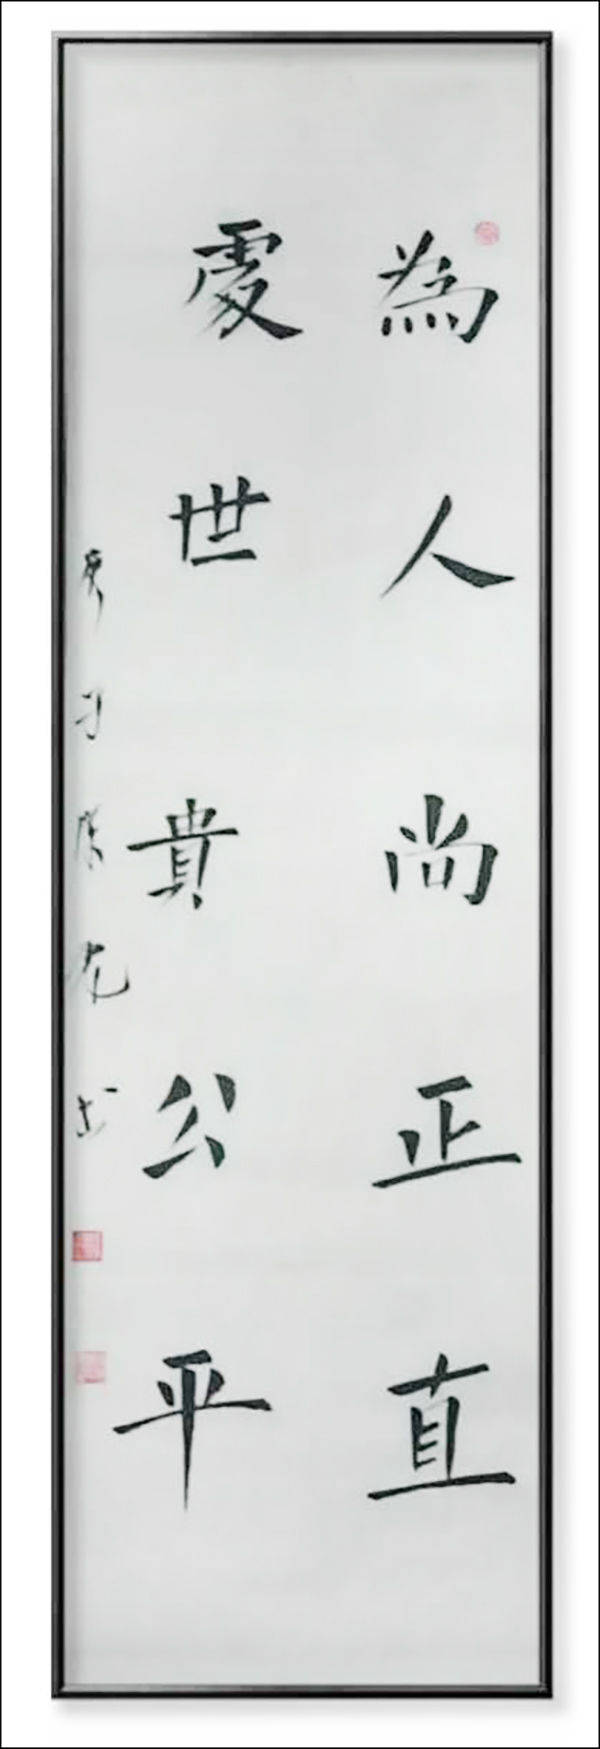 為人尚正直
處世貴公平